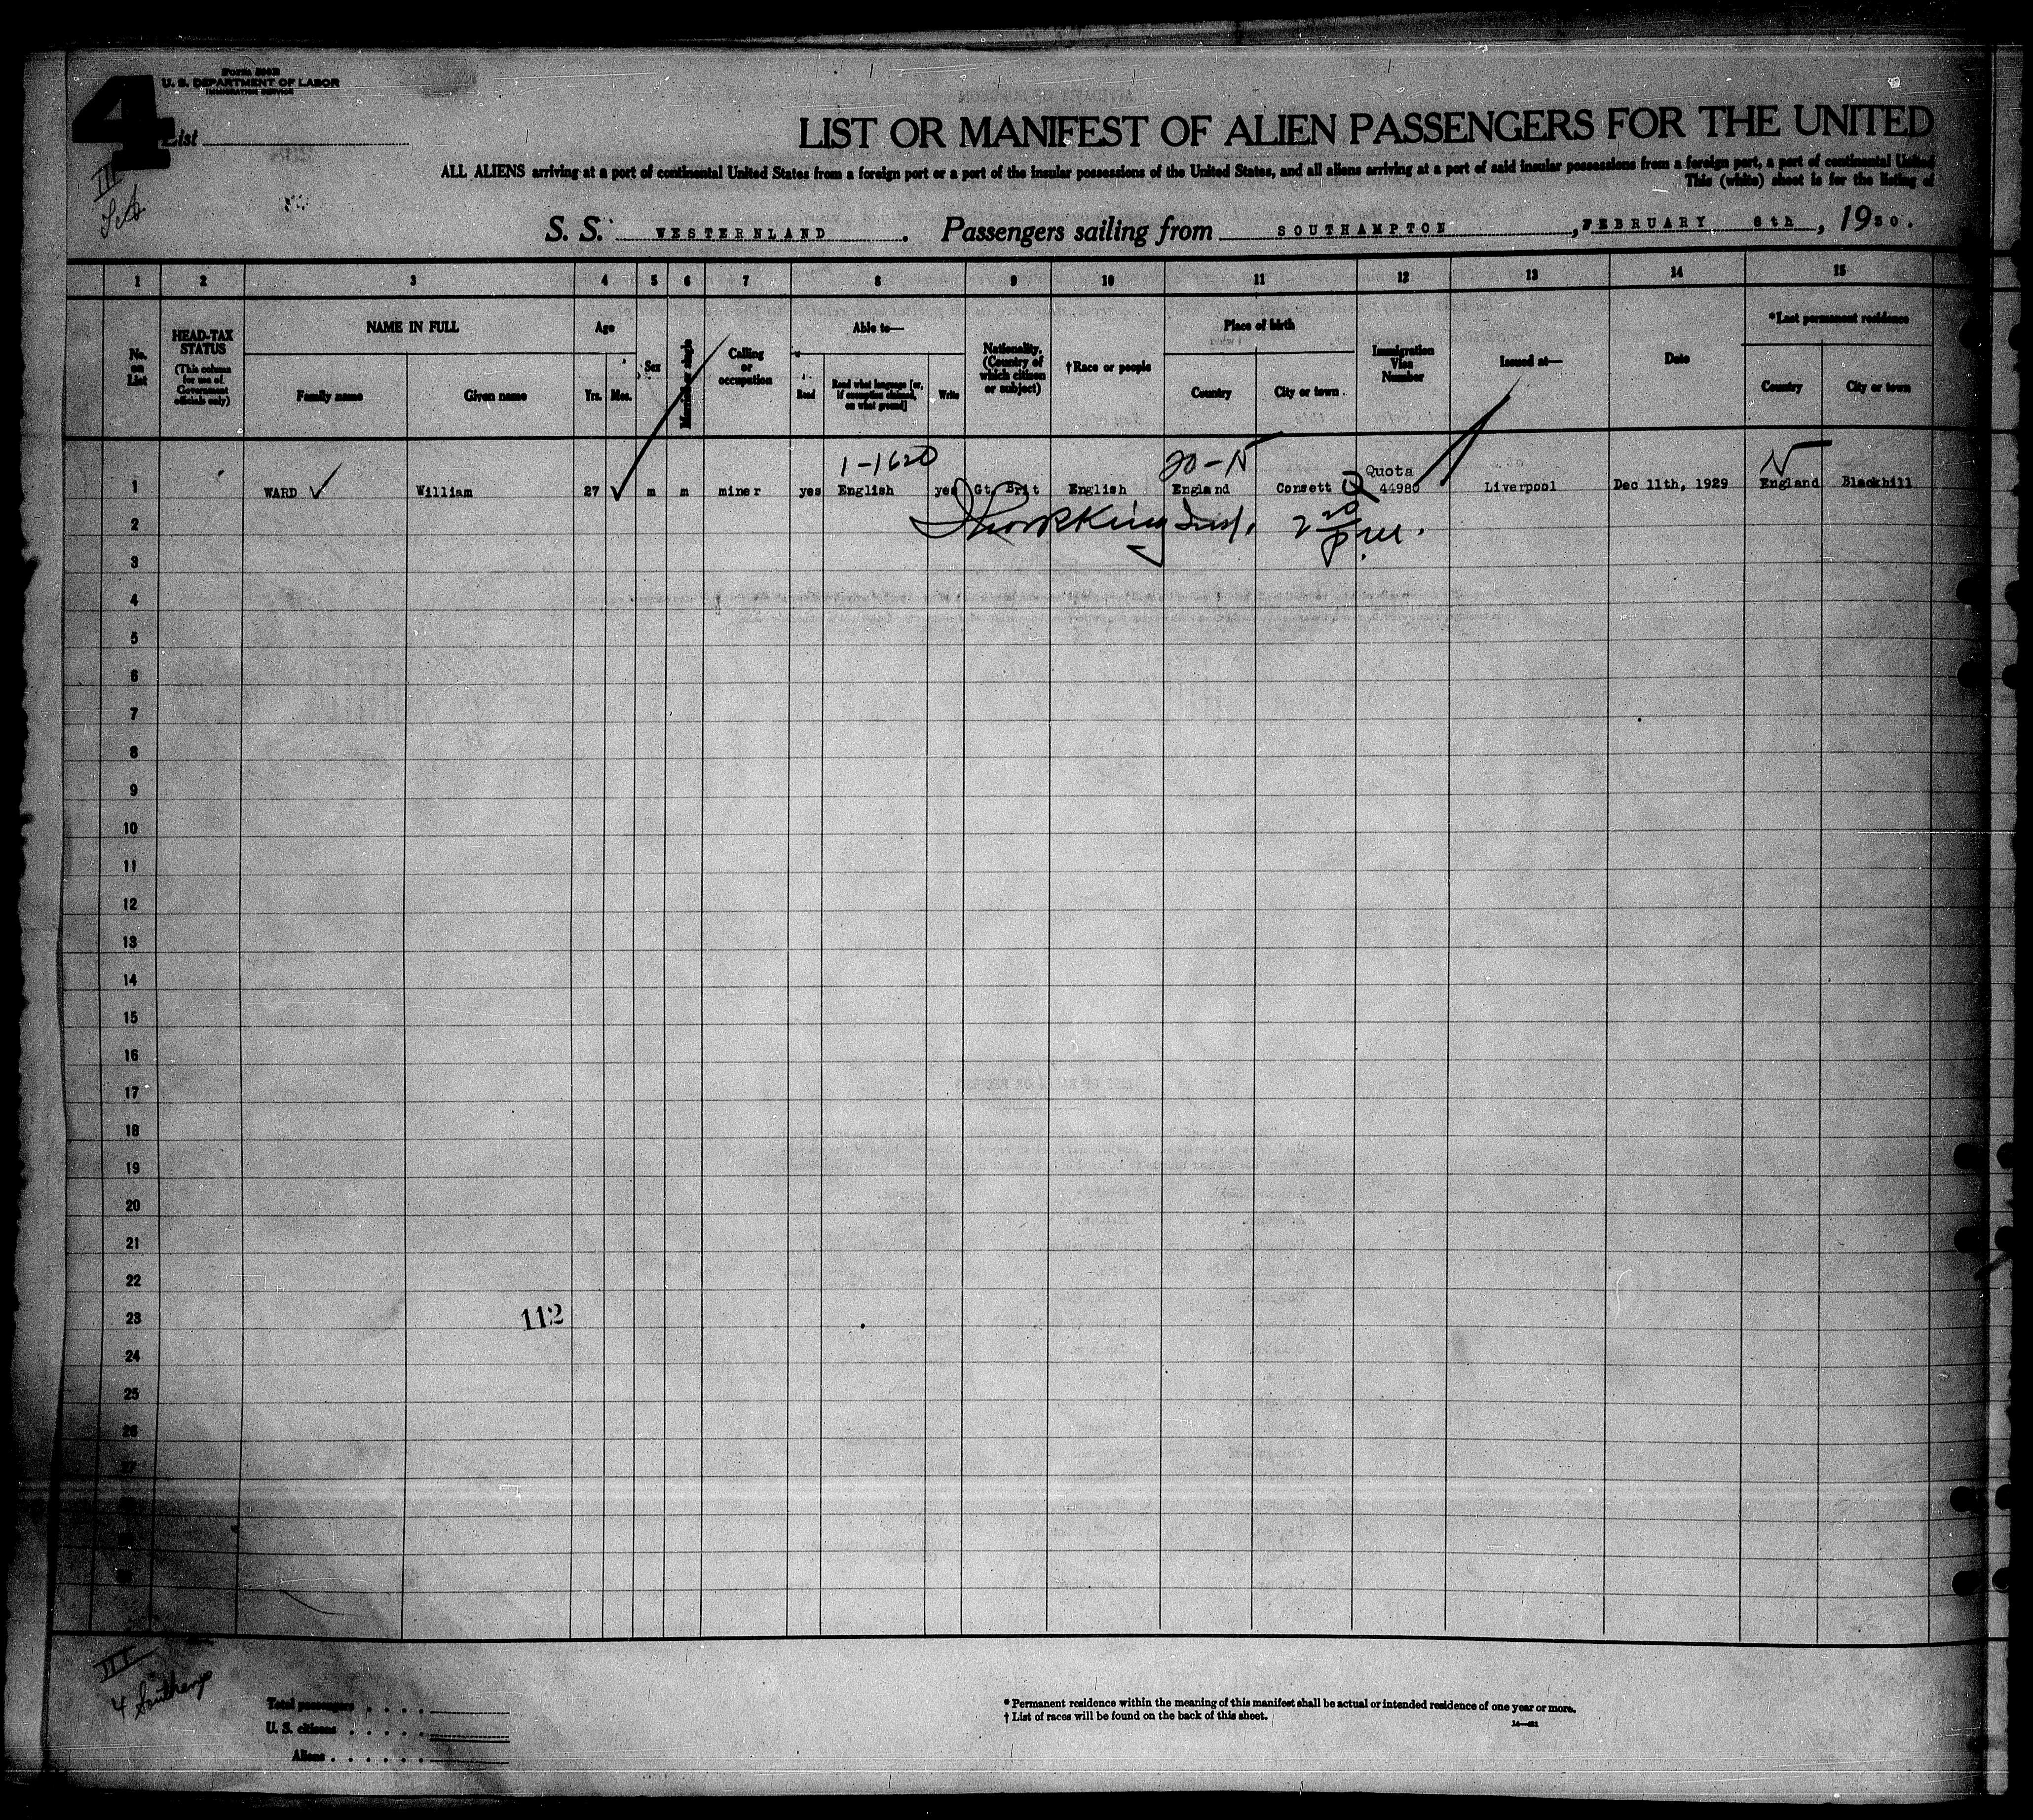 4
Form 500B
U. S. DEPARTMENT OF LABOR
IMMIGRATION SERVICE
List
LIST OR MANIFEST OF ALIEN PASSENGERS FOR THE UNITED
ALL ALIENS arriving at a port of continental United States from a foreign port or a part of the insular possessions of the United States, and all aliens arriving at a port of said insular possessions from a foreign port, a port of continental United
This (white) sheet is for the listing of
III
S. S. WESTERNLAND. Passengers sailing from SOUTHAMPTON, FEBRUARY 8th, 1930.
1 2 3 4 5 6 7 8 9 10 11 12 13 14 15
No. on List
HEAD-TAX STATUS
(This column for use of Government officials only)
NAME IN FULL
Family name Given name
Age
Yrs. Mos.
Sex
Married or single
Calling or occupation
Able to—
Read Read what language [or, if exemption claimed, on what ground] Write
Nationality. (Country of which citizen or subject)
†Race or people
Place of birth
Country City or town
Immigration Visa Number
Issued at—
Date
*Last permanent residence
Country City or town
1-1620 20-N Quota N
1 WARD ✓ William 27 ✓ m m miner yes English yes Gt. Brit English England Consett Q 44980 Liverpool Dec 11th, 1929 England Blackhill
2
3
4
5
6
7
8
9
10
11
12
13
14
15
16
17
18
19
20
21
22
23 112
24
25
26
27
III
4 Southamp
Total passengers
U. S. citizens
Aliens
* Permanent residence within the meaning of this manifest shall be actual or intended residence of one year or more.
† List of races will be found on the back of this sheet.